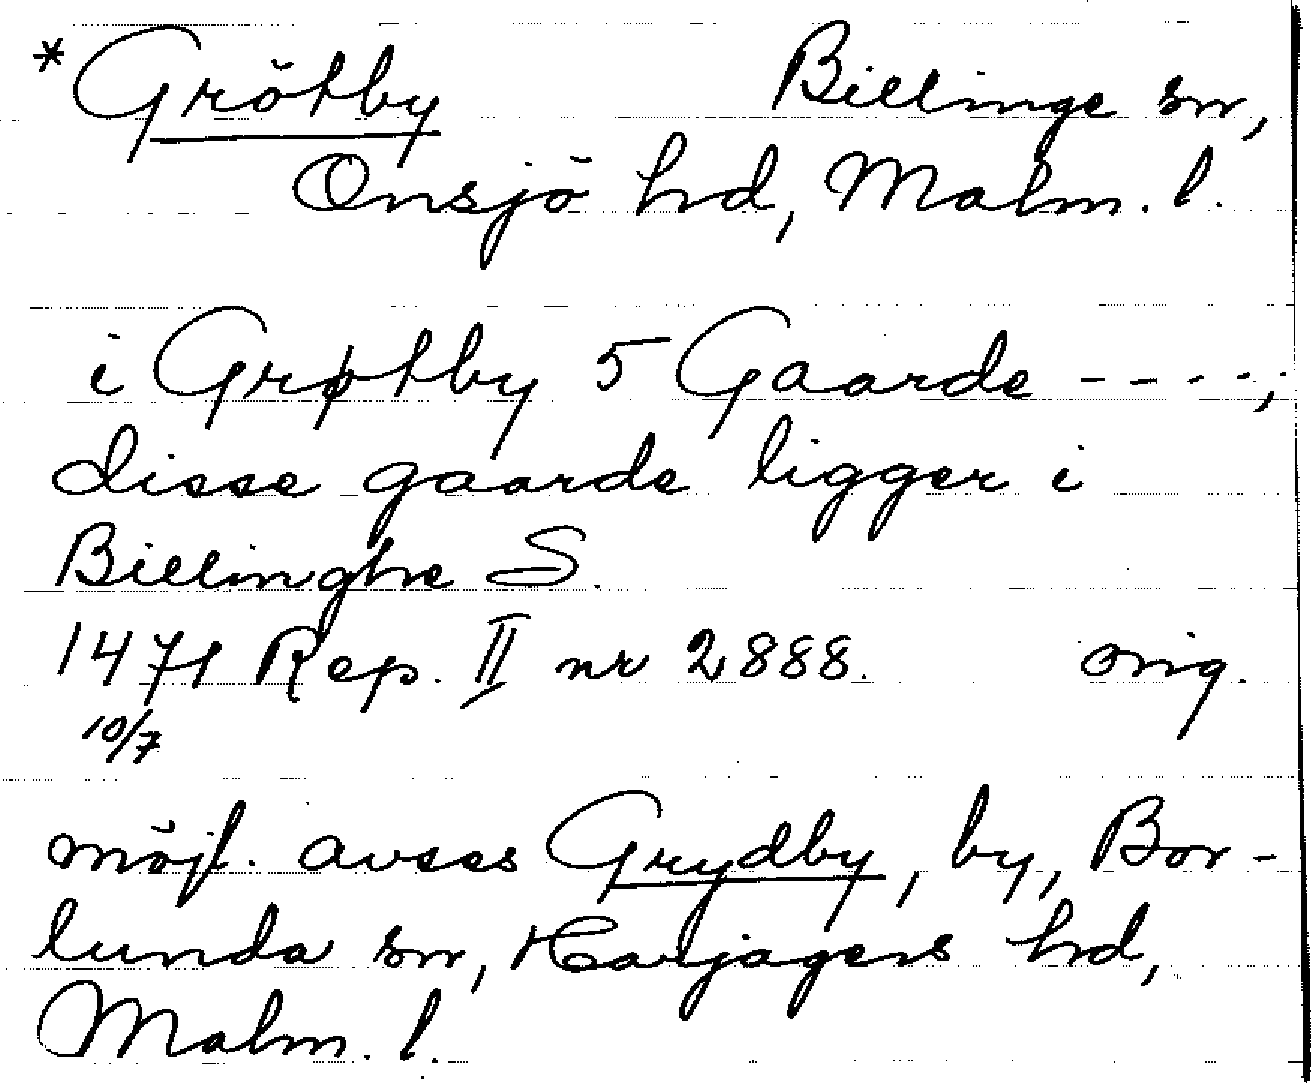 *Grötby Billinge sn,
Onsjö hd, Malm. l.
i Grøtby 5 Gaarde ----;
disse gaarde ligger i
Billinghe S.
1471 Rep. II nr 2888. orig.
10/7
möjl. avses Grydby, by, Bor-
lunda sn, Harjagers hd,
Malm. l.